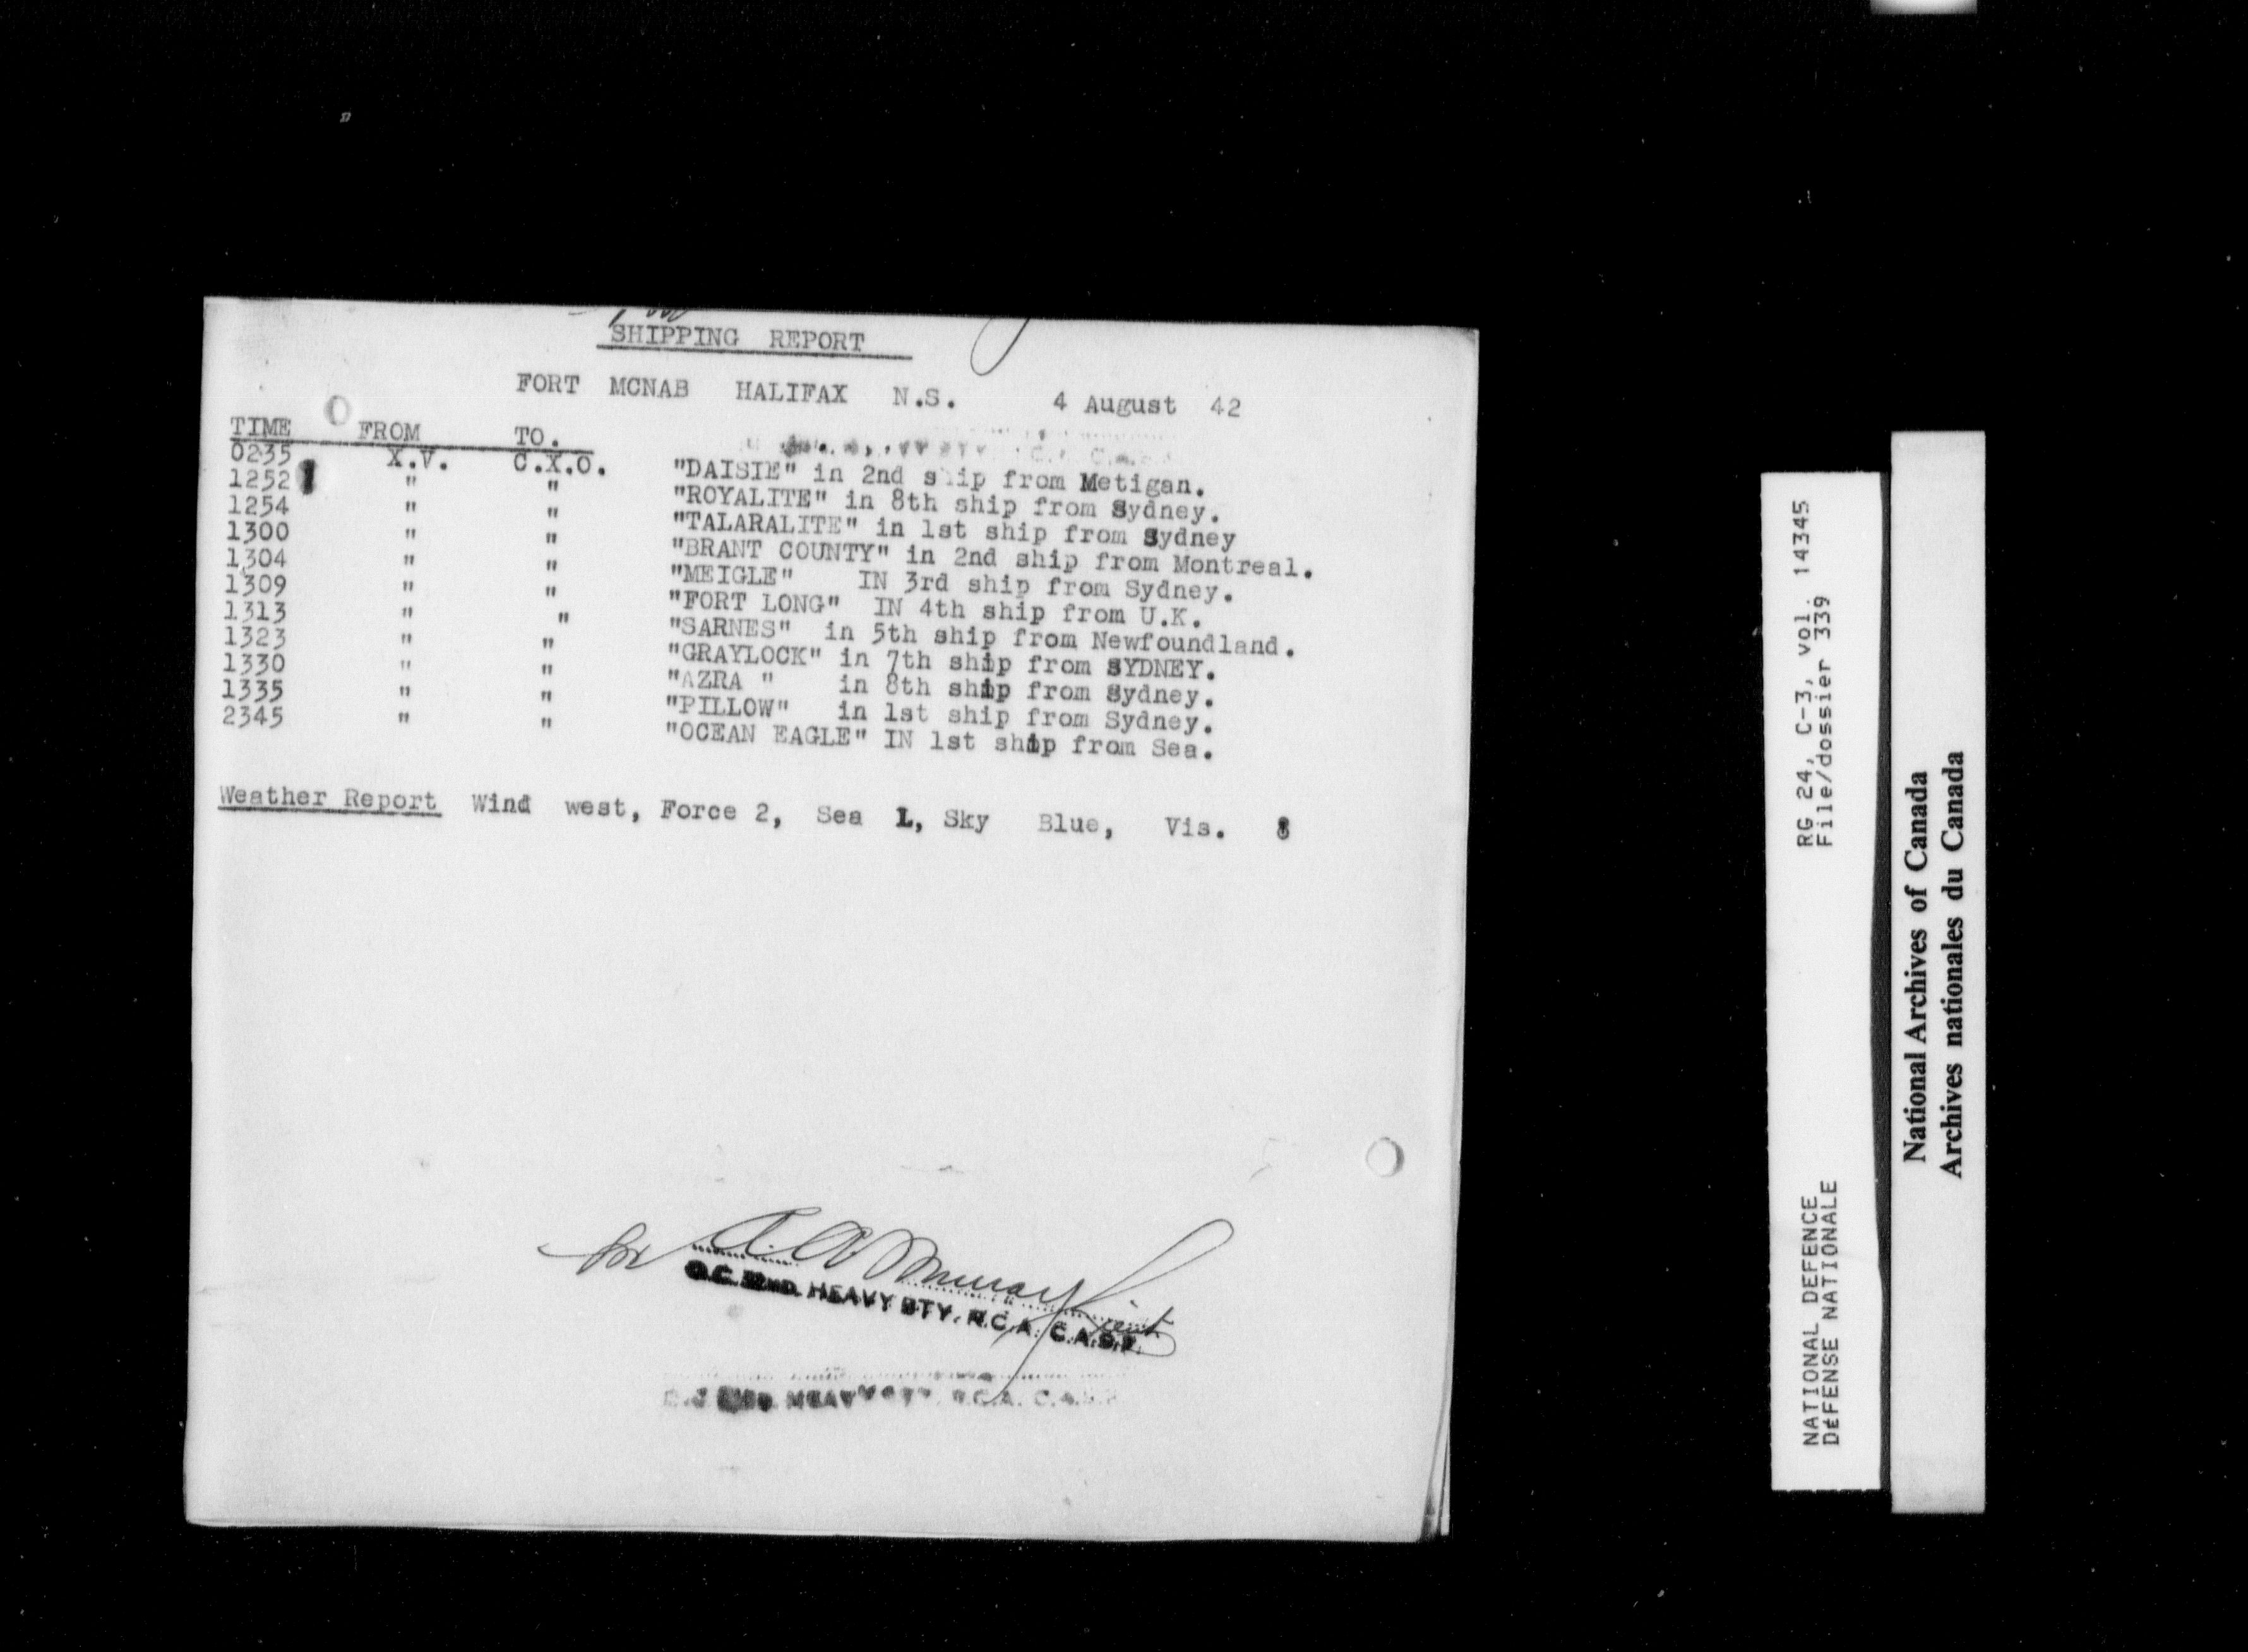 SHIPPING REPORT
FORT MCNAB HALIFAX N.S. 4 August 42
TIME FROM TO.
0235 X.V. C.X.O. "DAISIE" in 2nd ship from Metigan.
1252 " " "ROYALITE" in 8th ship from Sydney.
1254 " " "TALARALITE" in 1st ship from Sydney
1300 " " "BRANT COUNTY" in 2nd ship from Montreal.
1304 " " "MEIGLE" IN 3rd ship from Sydney.
1309 " " "FORT LONG" IN 4th ship from U.K.
1313 " " "SARNES" in 5th ship from Newfoundland.
1323 " " "GRAYLOCK" in 7th ship from SYDNEY.
1330 " " "AZRA " in 8th ship from Sydney.
1335 " " "PILLOW" in 1st ship from Sydney.
2345 " " "OCEAN EAGLE" IN 1st ship from Sea.
Weather Report Wind west, Force 2, Sea L, Sky Blue, Vis. 8
for A. A. Murray Lieut
O.C. 52ND. HEAVY BTY. R.C.A. C.A.S.F.
HEAVY BTY. R.C.A. C.A.S.F.
RG 24, C-3, vol. 14345
File/dossier 339
NATIONAL DEFENCE
DÉFENSE NATIONALE
National Archives of Canada
Archives nationales du Canada